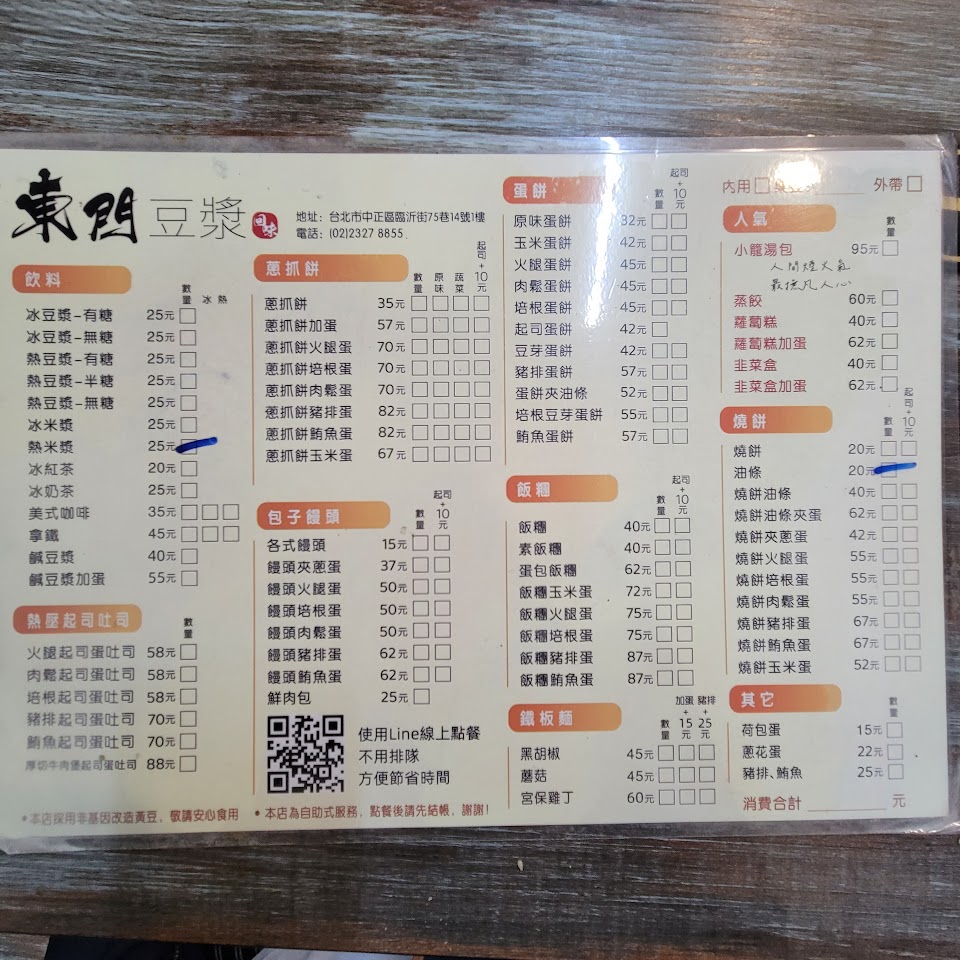 東門豆漿 回味
地址：台北市中正區臨沂街75巷14號1樓
電話：(02)2327 8855
飲料
數量 冰 熱
冰豆漿-有糖 25元
冰豆漿-無糖 25元
熱豆漿-有糖 25元
熱豆漿-半糖 25元
熱豆漿-無糖 25元
冰米漿 25元
熱米漿 25元
冰紅茶 20元
冰奶茶 25元
美式咖啡 35元
拿鐵 45元
鹹豆漿 40元
鹹豆漿加蛋 55元
熱壓起司吐司
數量
火腿起司蛋吐司 58元
肉鬆起司蛋吐司 58元
培根起司蛋吐司 58元
豬排起司蛋吐司 70元
鮪魚起司蛋吐司 70元
厚切牛肉堡起司蛋吐司 88元
蔥抓餅
數量 原味 蔬菜 起司+10元
蔥抓餅 35元
蔥抓餅加蛋 57元
蔥抓餅火腿蛋 70元
蔥抓餅培根蛋 70元
蔥抓餅肉鬆蛋 70元
蔥抓餅豬排蛋 82元
蔥抓餅鮪魚蛋 82元
蔥抓餅玉米蛋 67元
包子饅頭
數量 起司+10元
各式饅頭 15元
饅頭夾蔥蛋 37元
饅頭火腿蛋 50元
饅頭培根蛋 50元
饅頭肉鬆蛋 50元
饅頭豬排蛋 62元
饅頭鮪魚蛋 62元
鮮肉包 25元
使用Line線上點餐
不用排隊
方便節省時間
蛋餅
數量 起司+10元
原味蛋餅 32元
玉米蛋餅 42元
火腿蛋餅 45元
肉鬆蛋餅 45元
培根蛋餅 45元
起司蛋餅 42元
豆芽蛋餅 42元
豬排蛋餅 57元
蛋餅夾油條 52元
培根豆芽蛋餅 55元
鮪魚蛋餅 57元
飯糰
數量 起司+10元
飯糰 40元
素飯糰 40元
蛋包飯糰 62元
飯糰玉米蛋 72元
飯糰火腿蛋 75元
飯糰培根蛋 75元
飯糰豬排蛋 87元
飯糰鮪魚蛋 87元
鐵板麵
數量 加蛋+15元 豬排+25元
黑胡椒 45元
蘑菇 45元
宮保雞丁 60元
內用 外帶
人氣
數量
小籠湯包 95元
人間煙火氣
最撫凡人心
蒸餃 60元
蘿蔔糕 40元
蘿蔔糕加蛋 62元
韭菜盒 40元
韭菜盒加蛋 62元
燒餅
數量 起司+10元
燒餅 20元
油條 20元
燒餅油條 40元
燒餅油條夾蛋 62元
燒餅夾蔥蛋 42元
燒餅火腿蛋 55元
燒餅培根蛋 55元
燒餅肉鬆蛋 55元
燒餅豬排蛋 67元
燒餅鮪魚蛋 67元
燒餅玉米蛋 52元
其它
數量
荷包蛋 15元
蔥花蛋 22元
豬排、鮪魚 25元
消費合計 元
•本店採用非基因改造黃豆，敬請安心食用 •本店為自助式服務，點餐後請先結帳，謝謝！